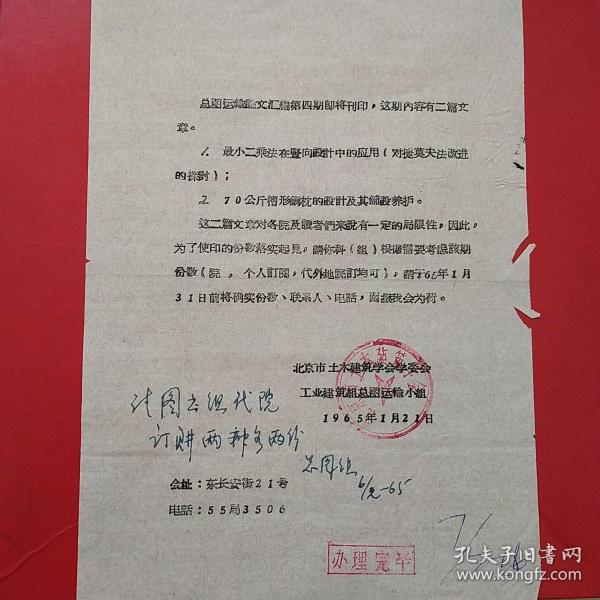 总图运输论文汇编第四期即将刊印，这期内容有二篇文
章。
1. 最小二乘法在竪向設計中的应用（对捷莫夫法改进
的探討）；
2. 70公斤槽形鋼枕的設計及其鋪設养护。
这二篇文章对各院及讀者們来說有一定的局限性，因此，
为了使印的份数落实起見，請你科（組）根据需要考虑該期
份数（院，个人訂閱，代外地院訂均可），請于'65年1月
31日前将确实份数、联系人、电話，函报我会为荷。
北京市土木建筑学会学委会
工业建筑組总图运輸小組
1965年1月21日
計图書組代院
订購两种各两份
总图组
6/元-65
会址：东长安街21号
电話：55局3506
办理完毕
孔夫子旧书网
kongfz.com